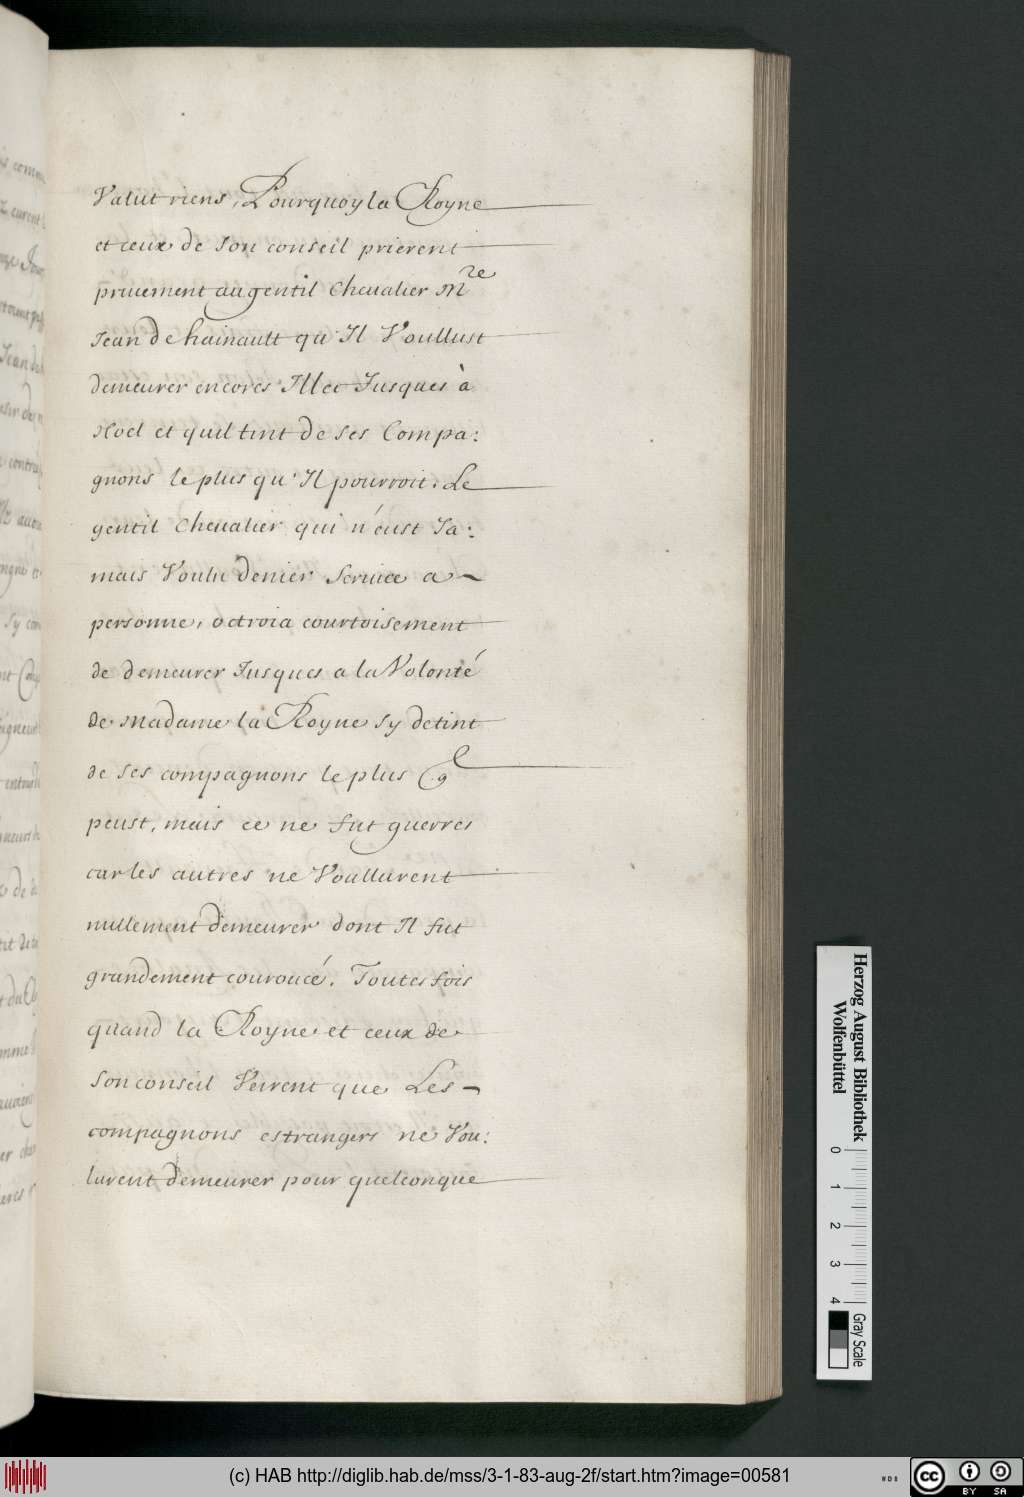 Valut riens, Pourquoy la Royne
et ceux de Son conseil prierent
priuement au gentil Cheualier Mre
Jean de hainautt qu'Il Voullust
demeurer encores Illec Jusques à
Noel et quil tint de ses Compa:
gnons le plus qu'Il pourroit. Le
gentil Cheualier qui n'eust Ja:
mais Voulu denier Seruice a -
personne, octroia courtoisement
de demeurer Jusques a la Volonté
de Madame la Royne sy detint
de ses compagnons le plus
peust, mais ce ne fut guerres
car les autres ne Voullurent
nullement demeurer dont Il fut
grandement couroucé. Toutesfois
quand la Royne et ceux de
Son conseil Veirent que Les -
compagnons estrangers ne Vou:
lurent demeurer pour quelconque
Herzog August Bibliothek
Wolfenbüttel
0 1 2 3 4
Gray Scale
(c) HAB http://diglib.hab.de/mss/3-1-83-aug-2f/start.htm?image=00581
cc BY SA